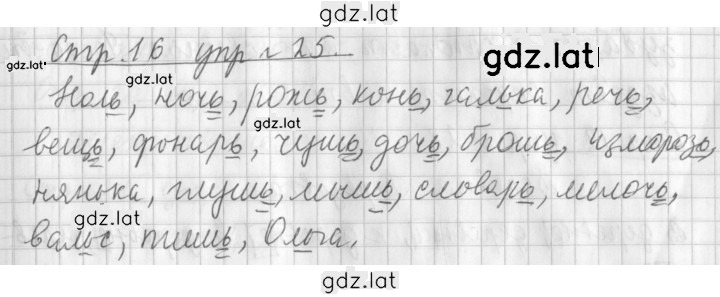 gdz.lat
Стр. 16 упр № 25.
gdz.lat
gdz.lat
gdz.lat
Ноль, ночь, рожь, конь, галька, речь,
gdz.lat
вещь, фонарь, чушь, дочь, брошь, изморозь,
нянька, глушь, мышь, словарь, мелочь,
gdz.lat
вальс, пишь, Ольга.
gdz.lat